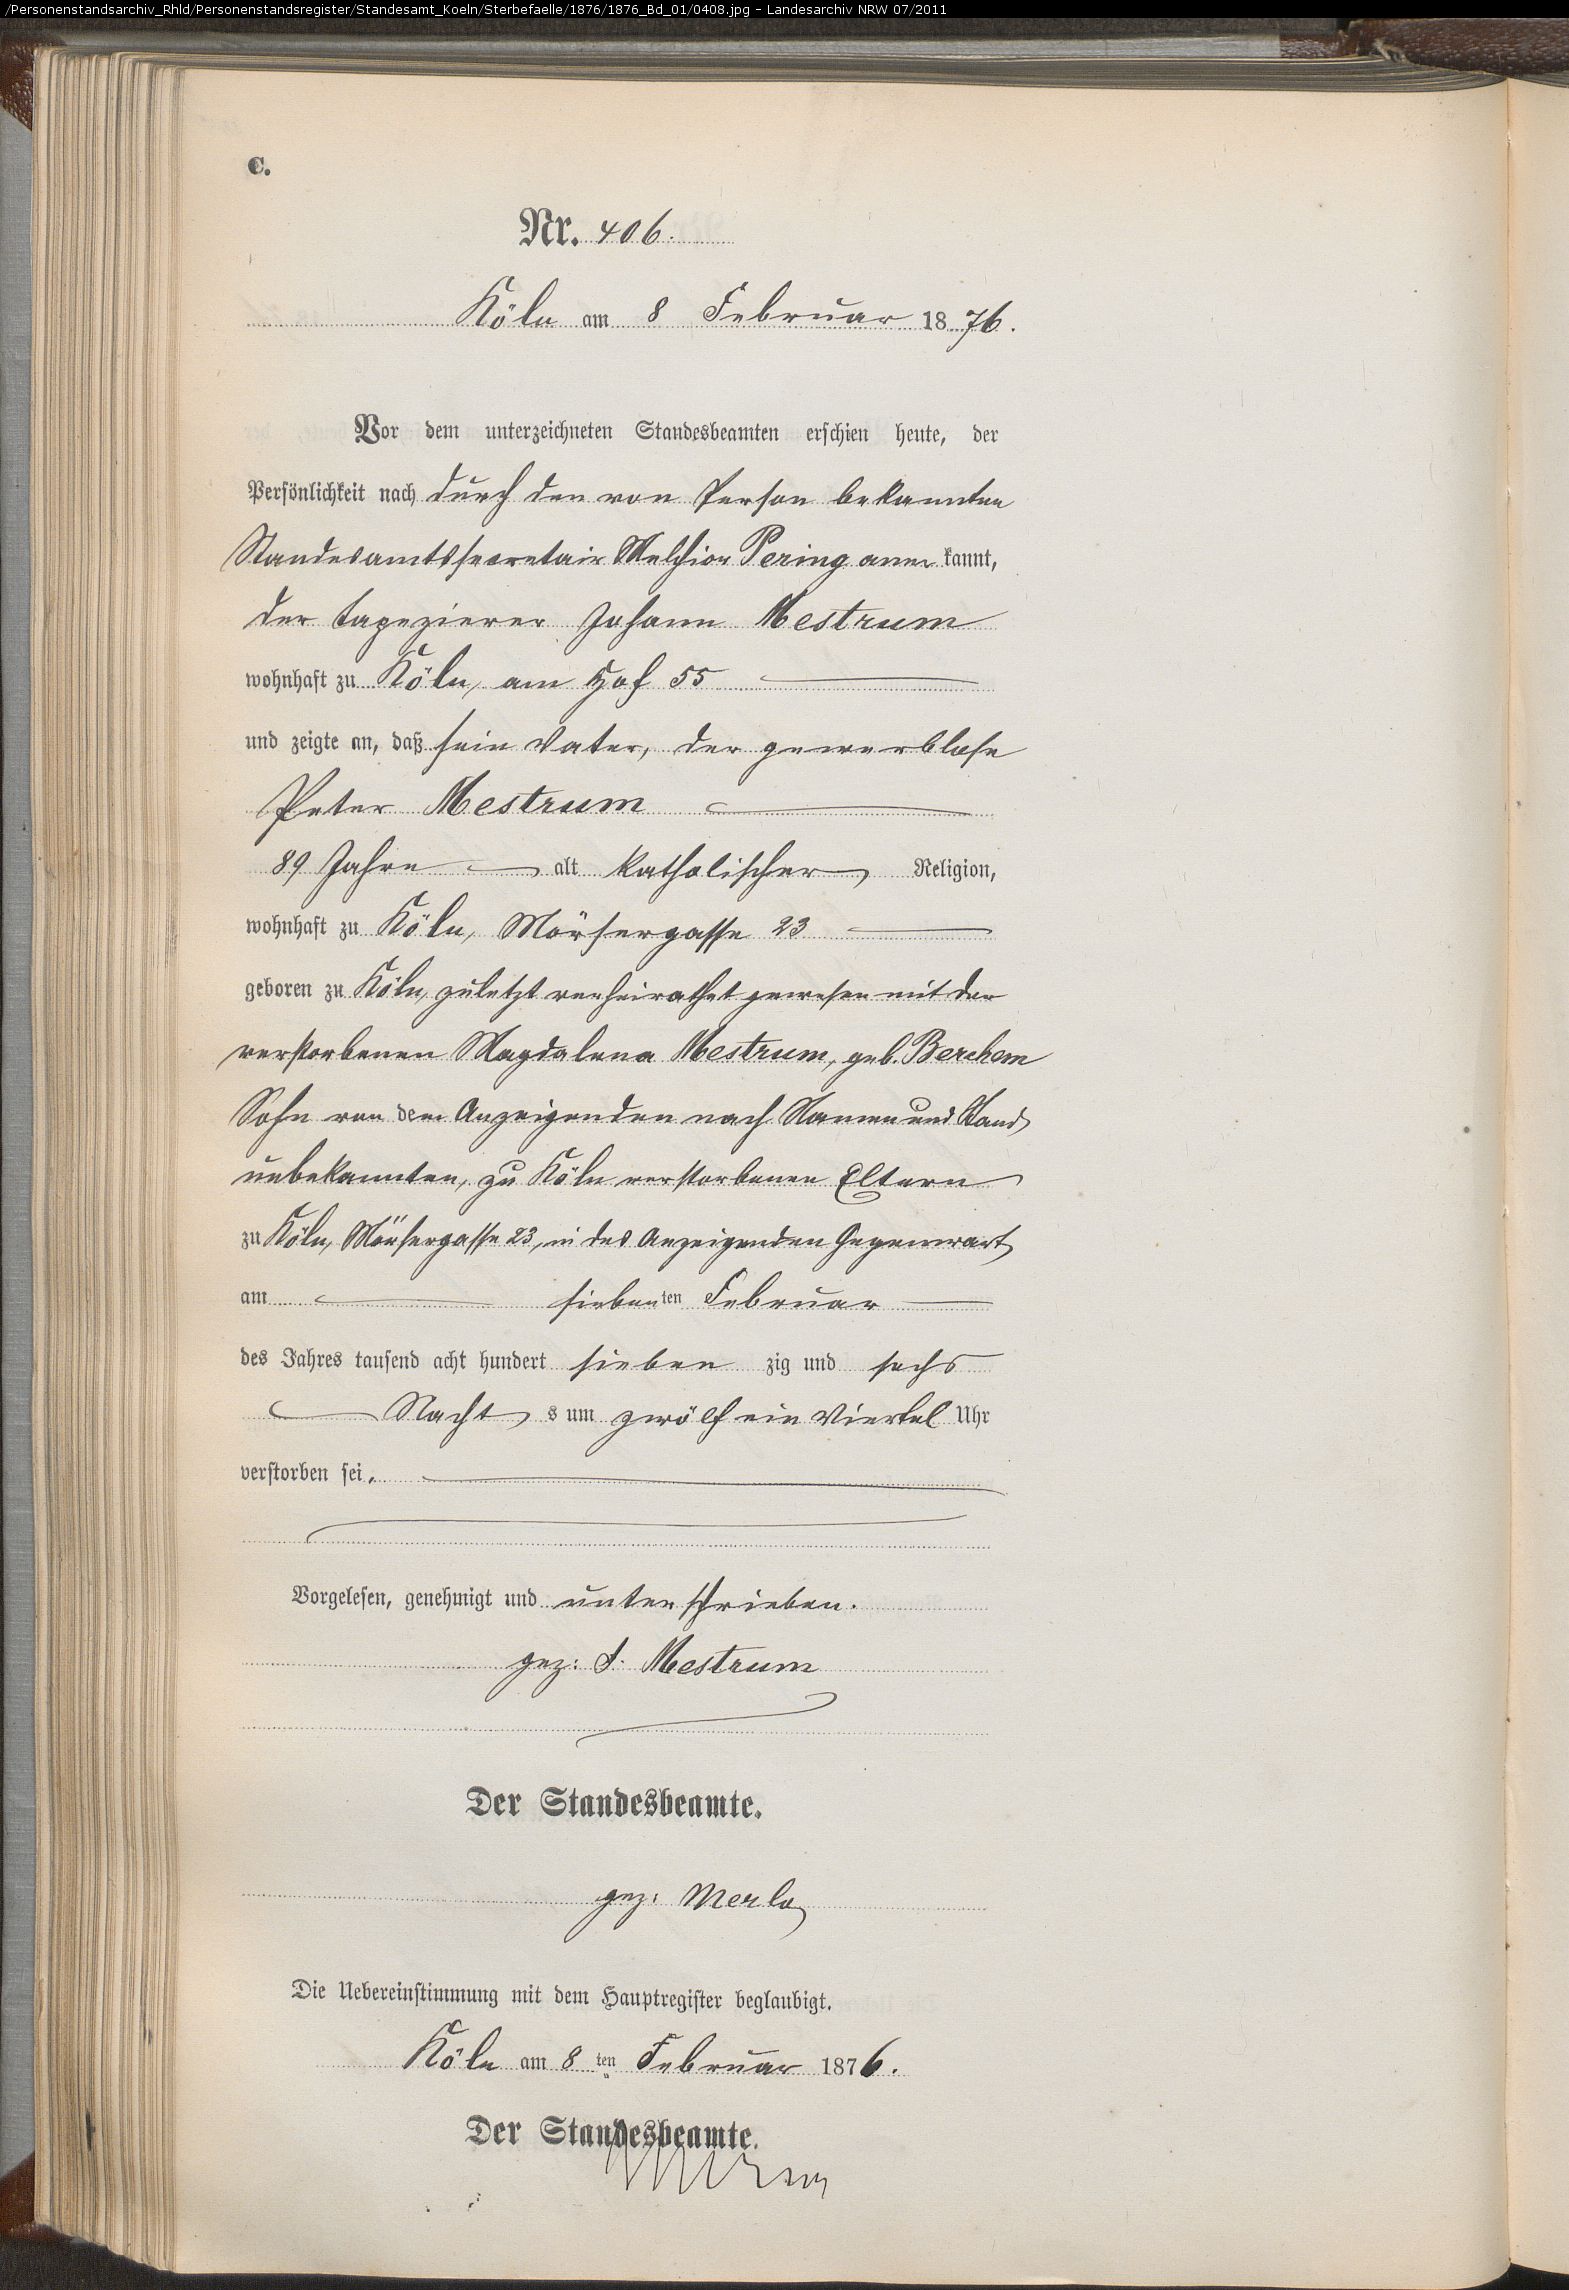 /Personenstandsarchiv_Rhld/Personenstandsregister/Standesamt_Koeln/Sterbefaelle/1876/1876_Bd_01/0408.jpg - Landesarchiv NRW 07/2011
C.
Nr. 406.
Köln am 8 Februar 1876.
Vor dem unterzeichneten Standesbeamten erschien heute, der
Persönlichkeit nach durch den von Person bekannten
Standesamtssecretair Melchior Pering aner kannt,
der Tapezierer Johann Mestrum
wohnhaft zu Köln, am Hof 55
und zeigte an, daß sein Vater, der gewerblose
Peter Mestrum
89 Jahre alt katholischer Religion,
wohnhaft zu Köln, Mörsergasse 23
geboren zu Köln, zuletzt verheirathet gewesen mit der
verstorbenen Magdalena Mestrum, geb. Berchem
Sohn von dem Anzeigenden nach Namen und Stand
unbekannten, zu Köln verstorbenen Eltern
zu Köln, Mörsergasse 23, in des Anzeigenden Gegenwart
am siebenten Februar
des Jahres tausend acht hundert sieben zig und sechs
Nacht s um zwölf ein Viertel Uhr
verstorben sei.
Vorgelesen, genehmigt und unterschrieben.
gez: J. Mestrum
Der Standesbeamte.
gez: Merlo
Die Uebereinstimmung mit dem Hauptregister beglaubigt.
Köln am 8 ten Februar 1876.
Der Standesbeamte.